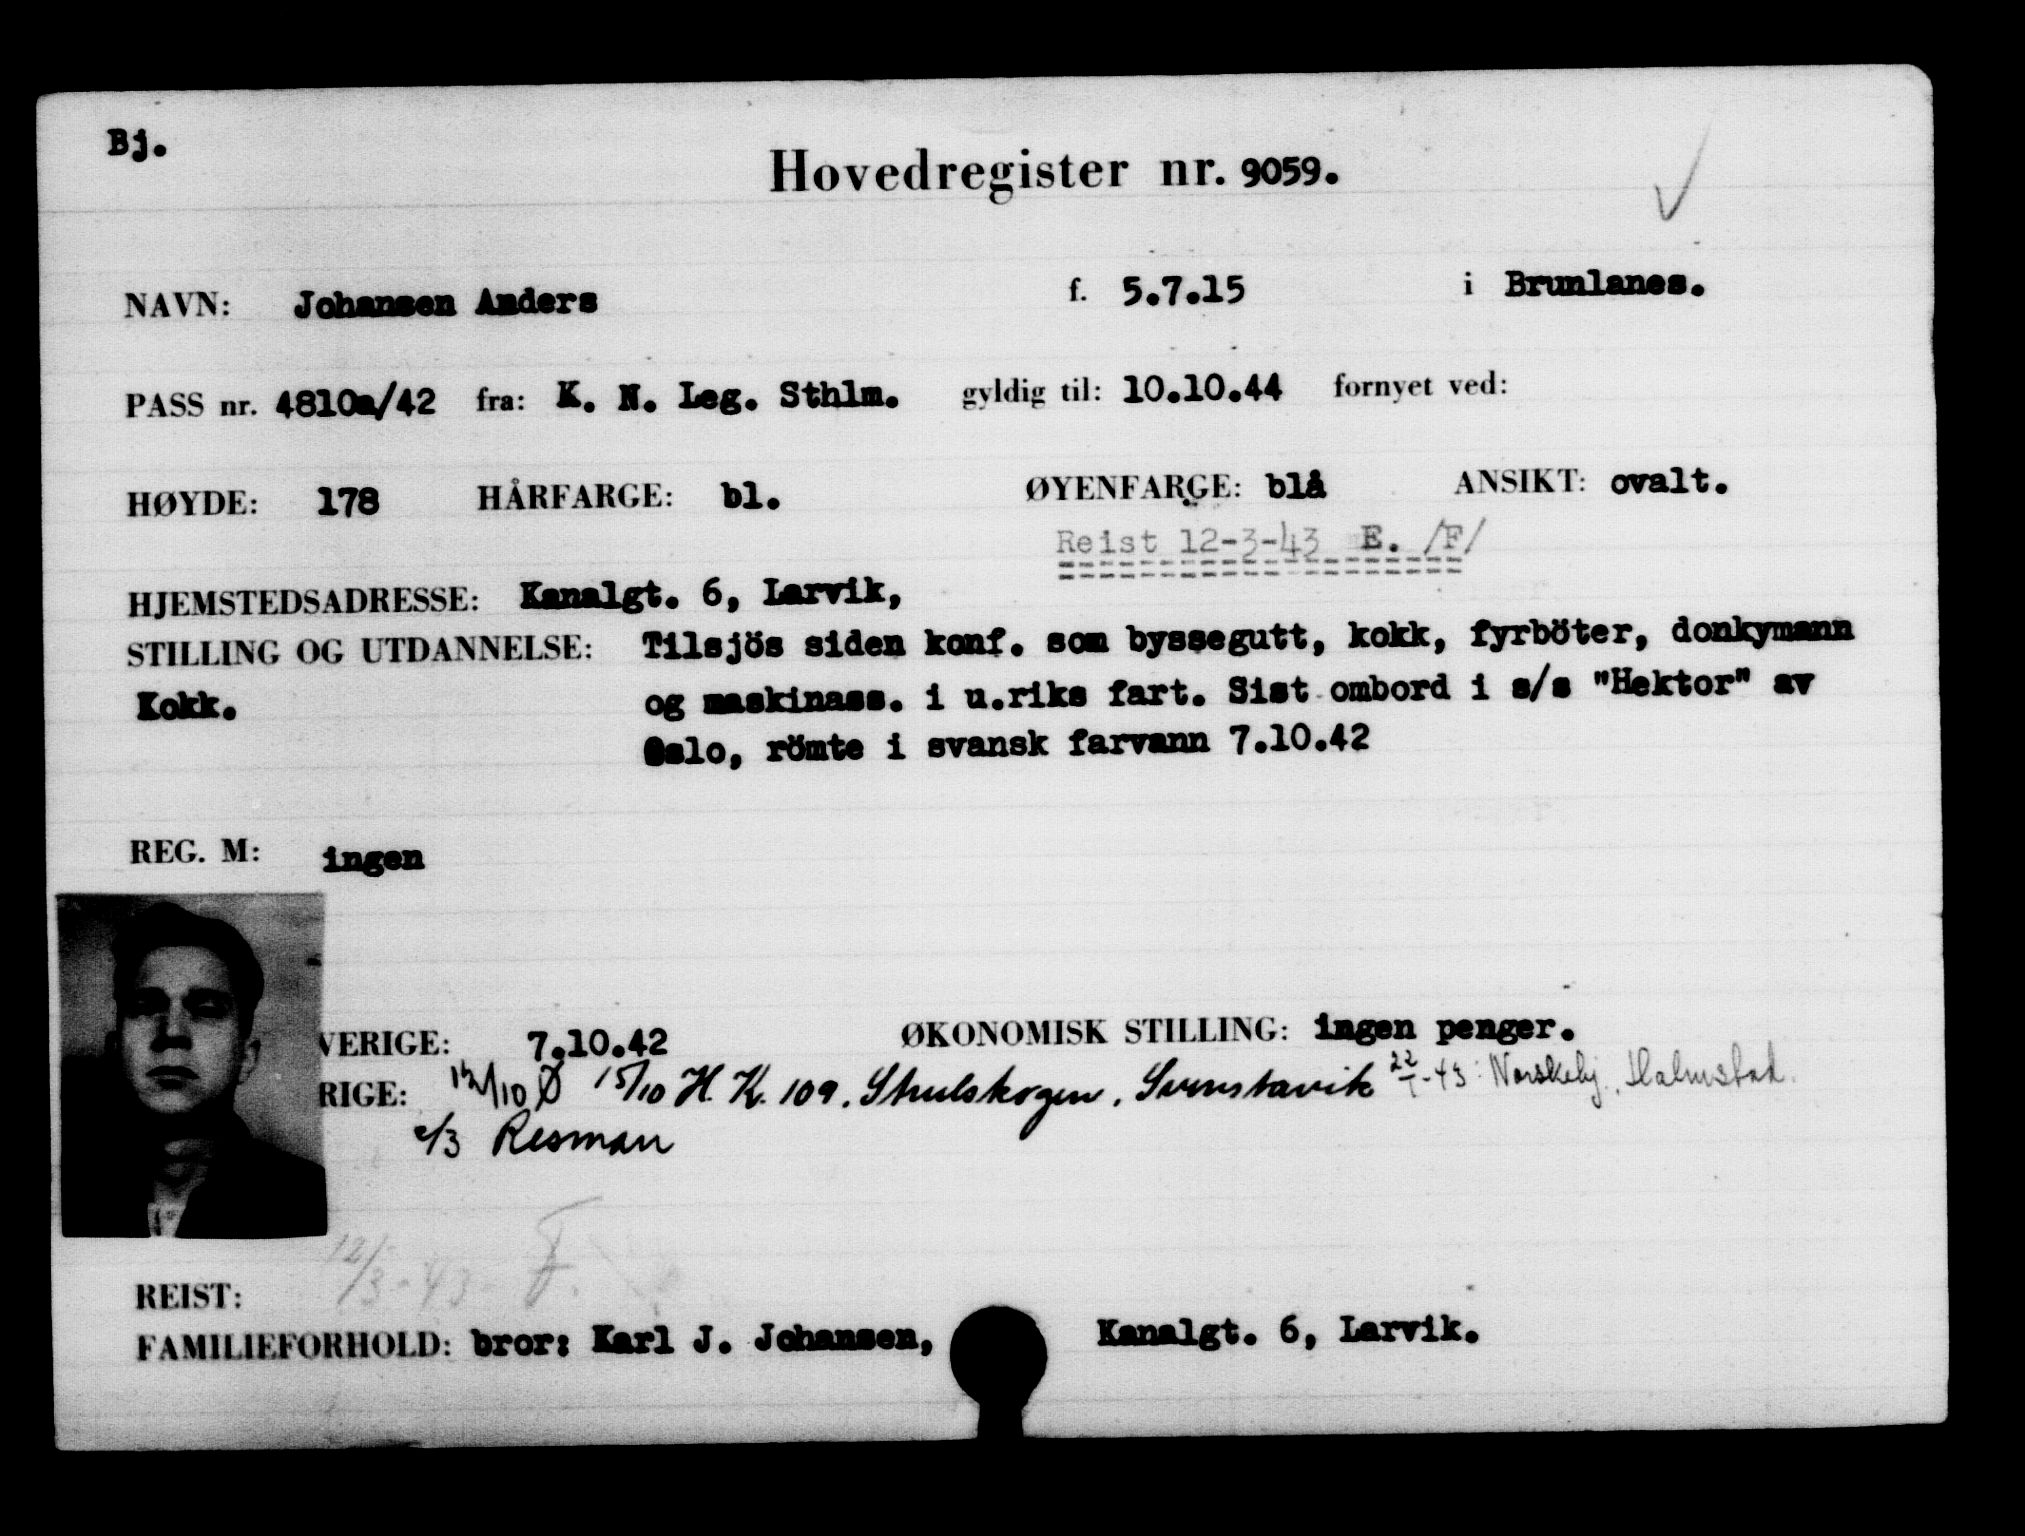 Bj.
Hovedregister nr. 9059.
NAVN: Johansen Anders f. 5.7.15 i Brunlanes.
PASS nr. 4810a/42 fra: K. N. Leg. Sthlm. gyldig til: 10.10.44 fornyet ved:
HØYDE: 178 HÅRFARGE: bl. ØYENFARGE: blå ANSIKT: ovalt.
Reist 12-3-43 E. /F/
HJEMSTEDSADRESSE: Kanalgt. 6, Larvik,
STILLING OG UTDANNELSE: Tilsjös siden konf. som byssegutt, kokk, fyrböter, donkymann
Kokk. og maskinass. i u.riks fart. Sist ombord i s/s "Hektor" av
Oslo, römte i svansk farvann 7.10.42
REG. M: ingen
VERIGE: 7.10.42 ØKONOMISK STILLING: ingen penger.
RIGE: 12/10 Ø 15/10 H. K. 109. Svenstavik 22/1-43: Halmstad.
/3 Resman
12/3-43 F.
REIST:
FAMILIEFORHOLD: bror: Karl J. Johansen, Kanalgt. 6, Larvik.